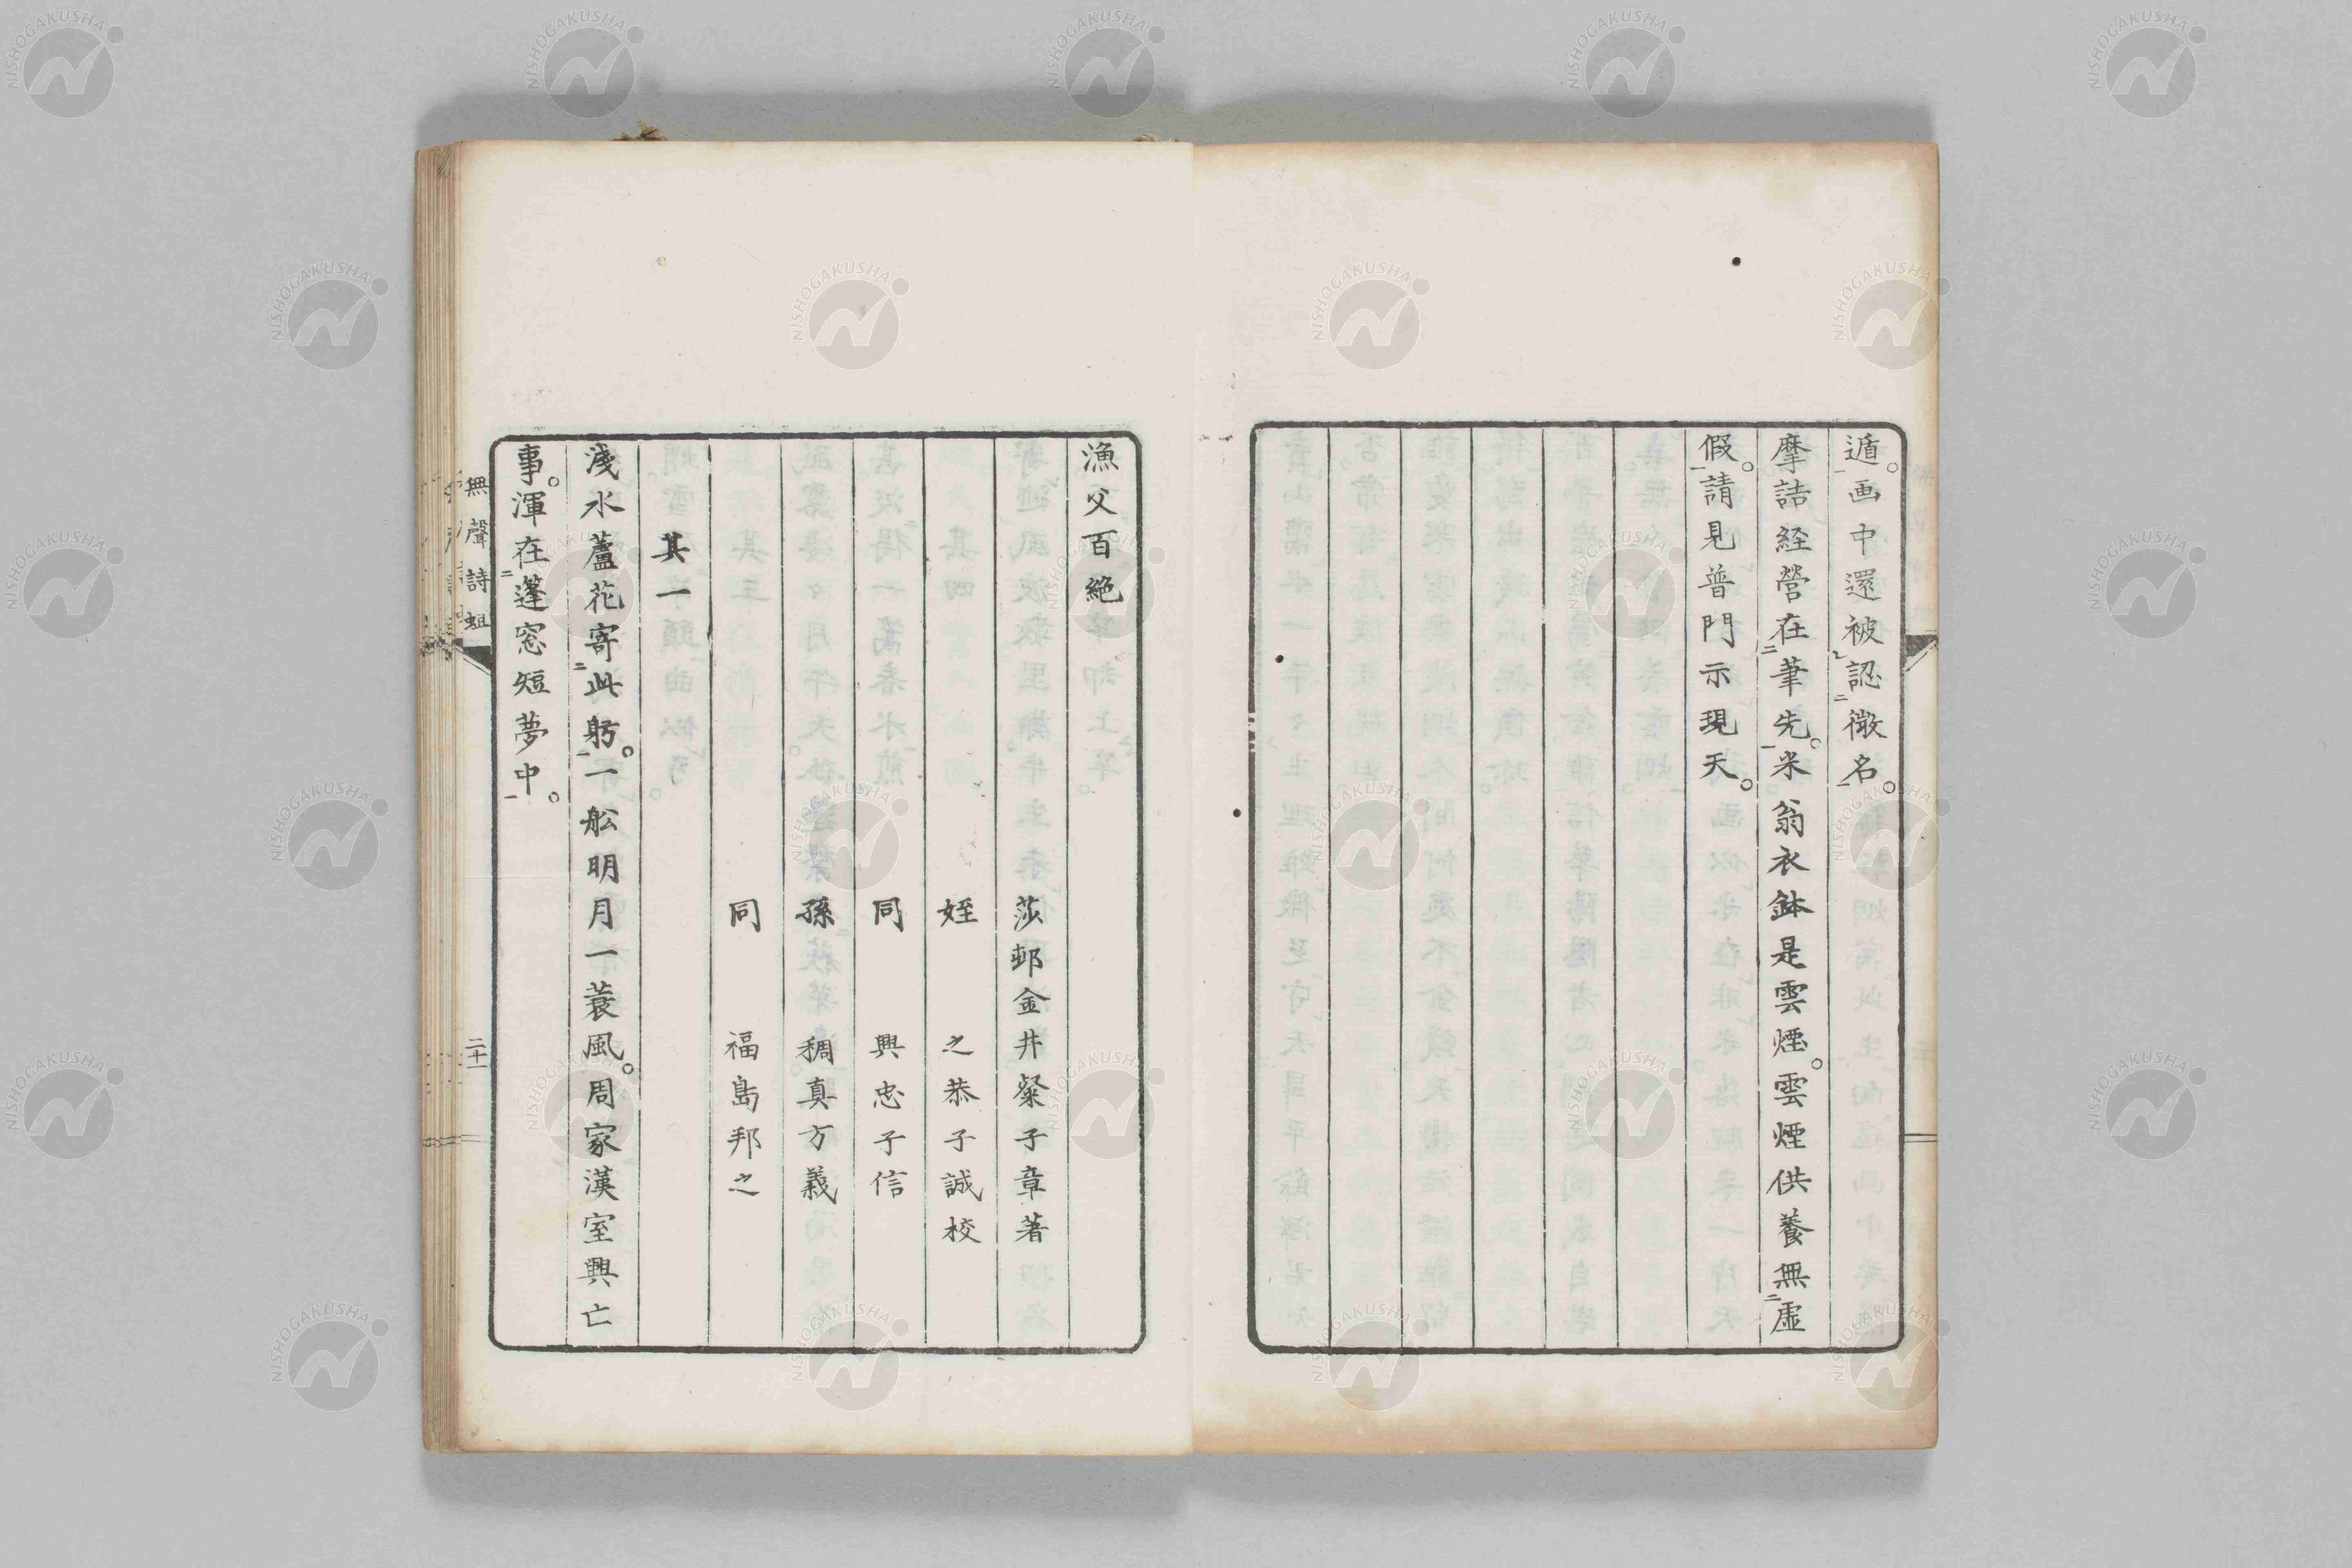 遁。画中還被認微名。
摩詰経營在筆先。米翁衣鉢是雲煙。雲煙供養無虛
假。請見普門示現天。
漁父百絶
莎邨金井粲子章著
姪 之恭子誠校
同 興忠子信
孫 稠真方義
同 福島邦之
其一
淺水蘆花寄此躬。一舩明月一蓑風。周家漢室興亡
事。渾在蓬窓短夢中。
無聲詩
二十一